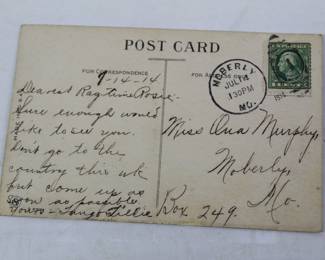 POST CARD
FOR CORRESPONDENCE
FOR ADDRESS ONLY
7-14-14
Dearest Ragtime Rosie:-
Sure enough would
like to see you.
Don't go to the
country this wk
but come up as
soon as possible
Yours- Lillie
MOBERLY
JUL 14
130PM
MO.
1914
Miss Ona Murphy
Moberly,
Mo.
Box 249.